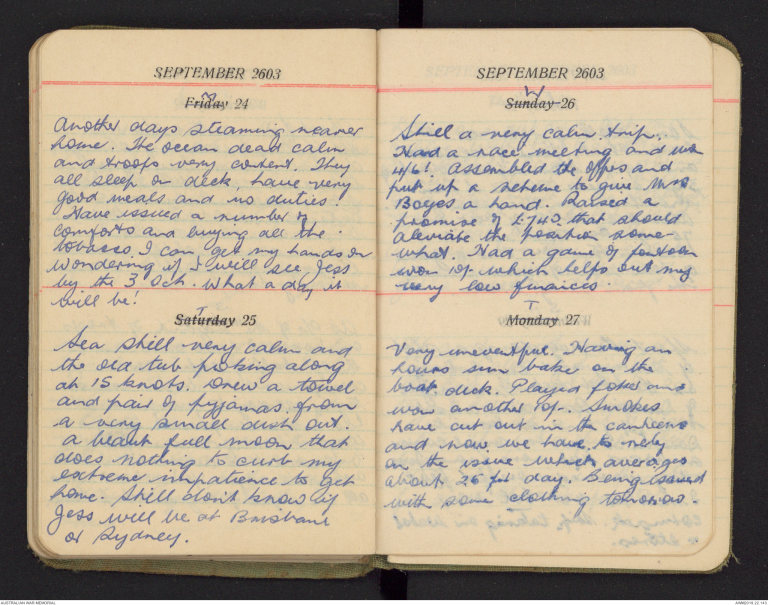 SEPTEMBER 2603
W
Friday 24
Another days steaming nearer
home. The ocean dead calm
and troops very content. They
all sleep on deck, have very
good meals and no duties.
Have issued a number of
comforts and buying all the
tobacco I can get my hands on
Wondering if I will see Jess
by the 3 Oct. What a day it
will be!
T
Saturday 25
Sea still very calm and
the old tub poking along
at 15 knots. Drew a towel
and pair of pyjamas from
a very small dish out.
a beaut full moon that
does nothing to curb my
extreme impatience to get
home. Still don't know if
Jess will be at Brisbane
or Sydney.
SEPTEMBER 2603
W
Sunday 26
Still a very calm trip.
Had a race meeting and won
4/6!. Assembled the Offrs and
put up a scheme to give Mrs
Boyes a hand. Raised a
promise of £740 that should
aleviate the position some-
what. Had a game of pontoon
won 10/- which helps out my
very low finances.
T
Monday 27
Very uneventful. Having an
hours sun bake on the
boat deck. Played poker and
won another 10/-. Smokes
have cut out in the canteens
and now we have to rely
on the issue which averages
about 25 per day. Being issued
with some clothing tomorrow.
AUSTRALIAN WAR MEMORIAL